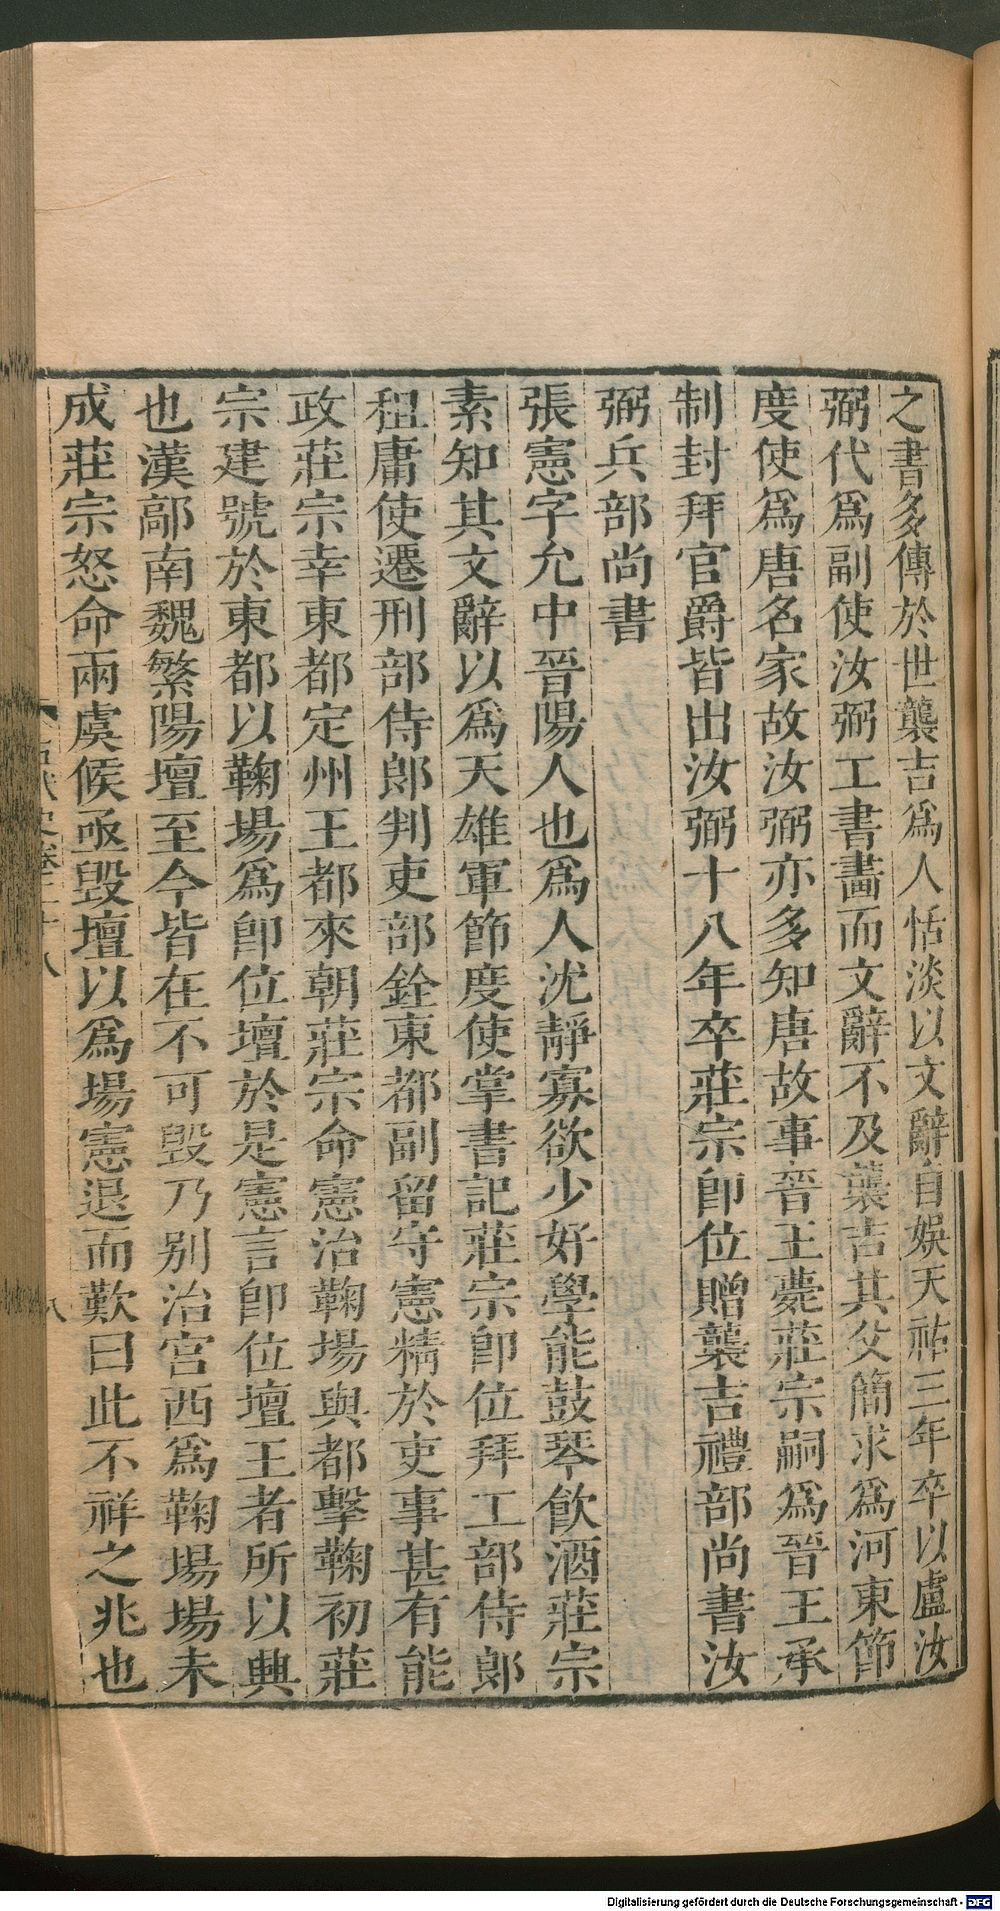 之書多傳於世襲吉爲人恬淡以文辭自娛天祐三年卒以盧汝
弼代爲副使汝弼工書畵而文辭不及襲吉其父簡求爲河東節
度使爲唐名家故汝弼亦多知唐故事晉王薨莊宗嗣爲晉王承
制封拜官爵皆出汝弼十八年卒莊宗卽位贈襲吉禮部尚書汝
弼兵部尚書
張憲字允中晉陽人也爲人沈靜寡欲少好學能鼓琴飮酒莊宗
素知其文辭以爲天雄軍節度使掌書記莊宗卽位拜工部侍郞
租庸使遷刑部侍郞判吏部銓東都副留守憲精於吏事甚有能
政莊宗幸東都定州王都來朝莊宗命憲治鞠場與都擊鞠初莊
宗建號於東都以鞠場爲卽位壇於是憲言卽位壇王者所以興
也漢鄗南魏繁陽壇至今皆在不可毀乃別治宮西爲鞠場場未
成莊宗怒命兩虞候亟毀壇以爲場憲退而歎曰此不祥之兆也
五代史卷二十八
八
Digitalisierung gefördert durch die Deutsche Forschungsgemeinschaft - DFG